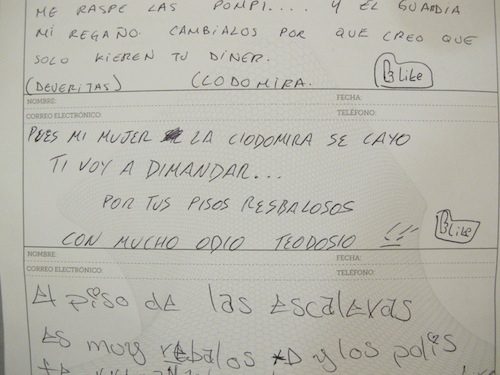 ME RASPE LAS POMPI.... Y EL GUARDIA
MI REGAÑO. CAMBIALOS POR QUE CREO QUE
SOLO KIEREN TU DINER.
(DEVERITAS) CLODOMIRA. Like
NOMBRE: FECHA:
CORREO ELECTRÓNICO: TELÉFONO:
PUES MI MUJER LA CLODOMIRA SE CAYO
TI VOY A DIMANDAR...
POR TUS PISOS RESBALOSOS
CON MUCHO ODIO TEODOSIO !!! Like
NOMBRE: FECHA:
CORREO ELECTRÓNICO: TELÉFONO:
El piso de las escaleras
es muy rebaloso y los polis